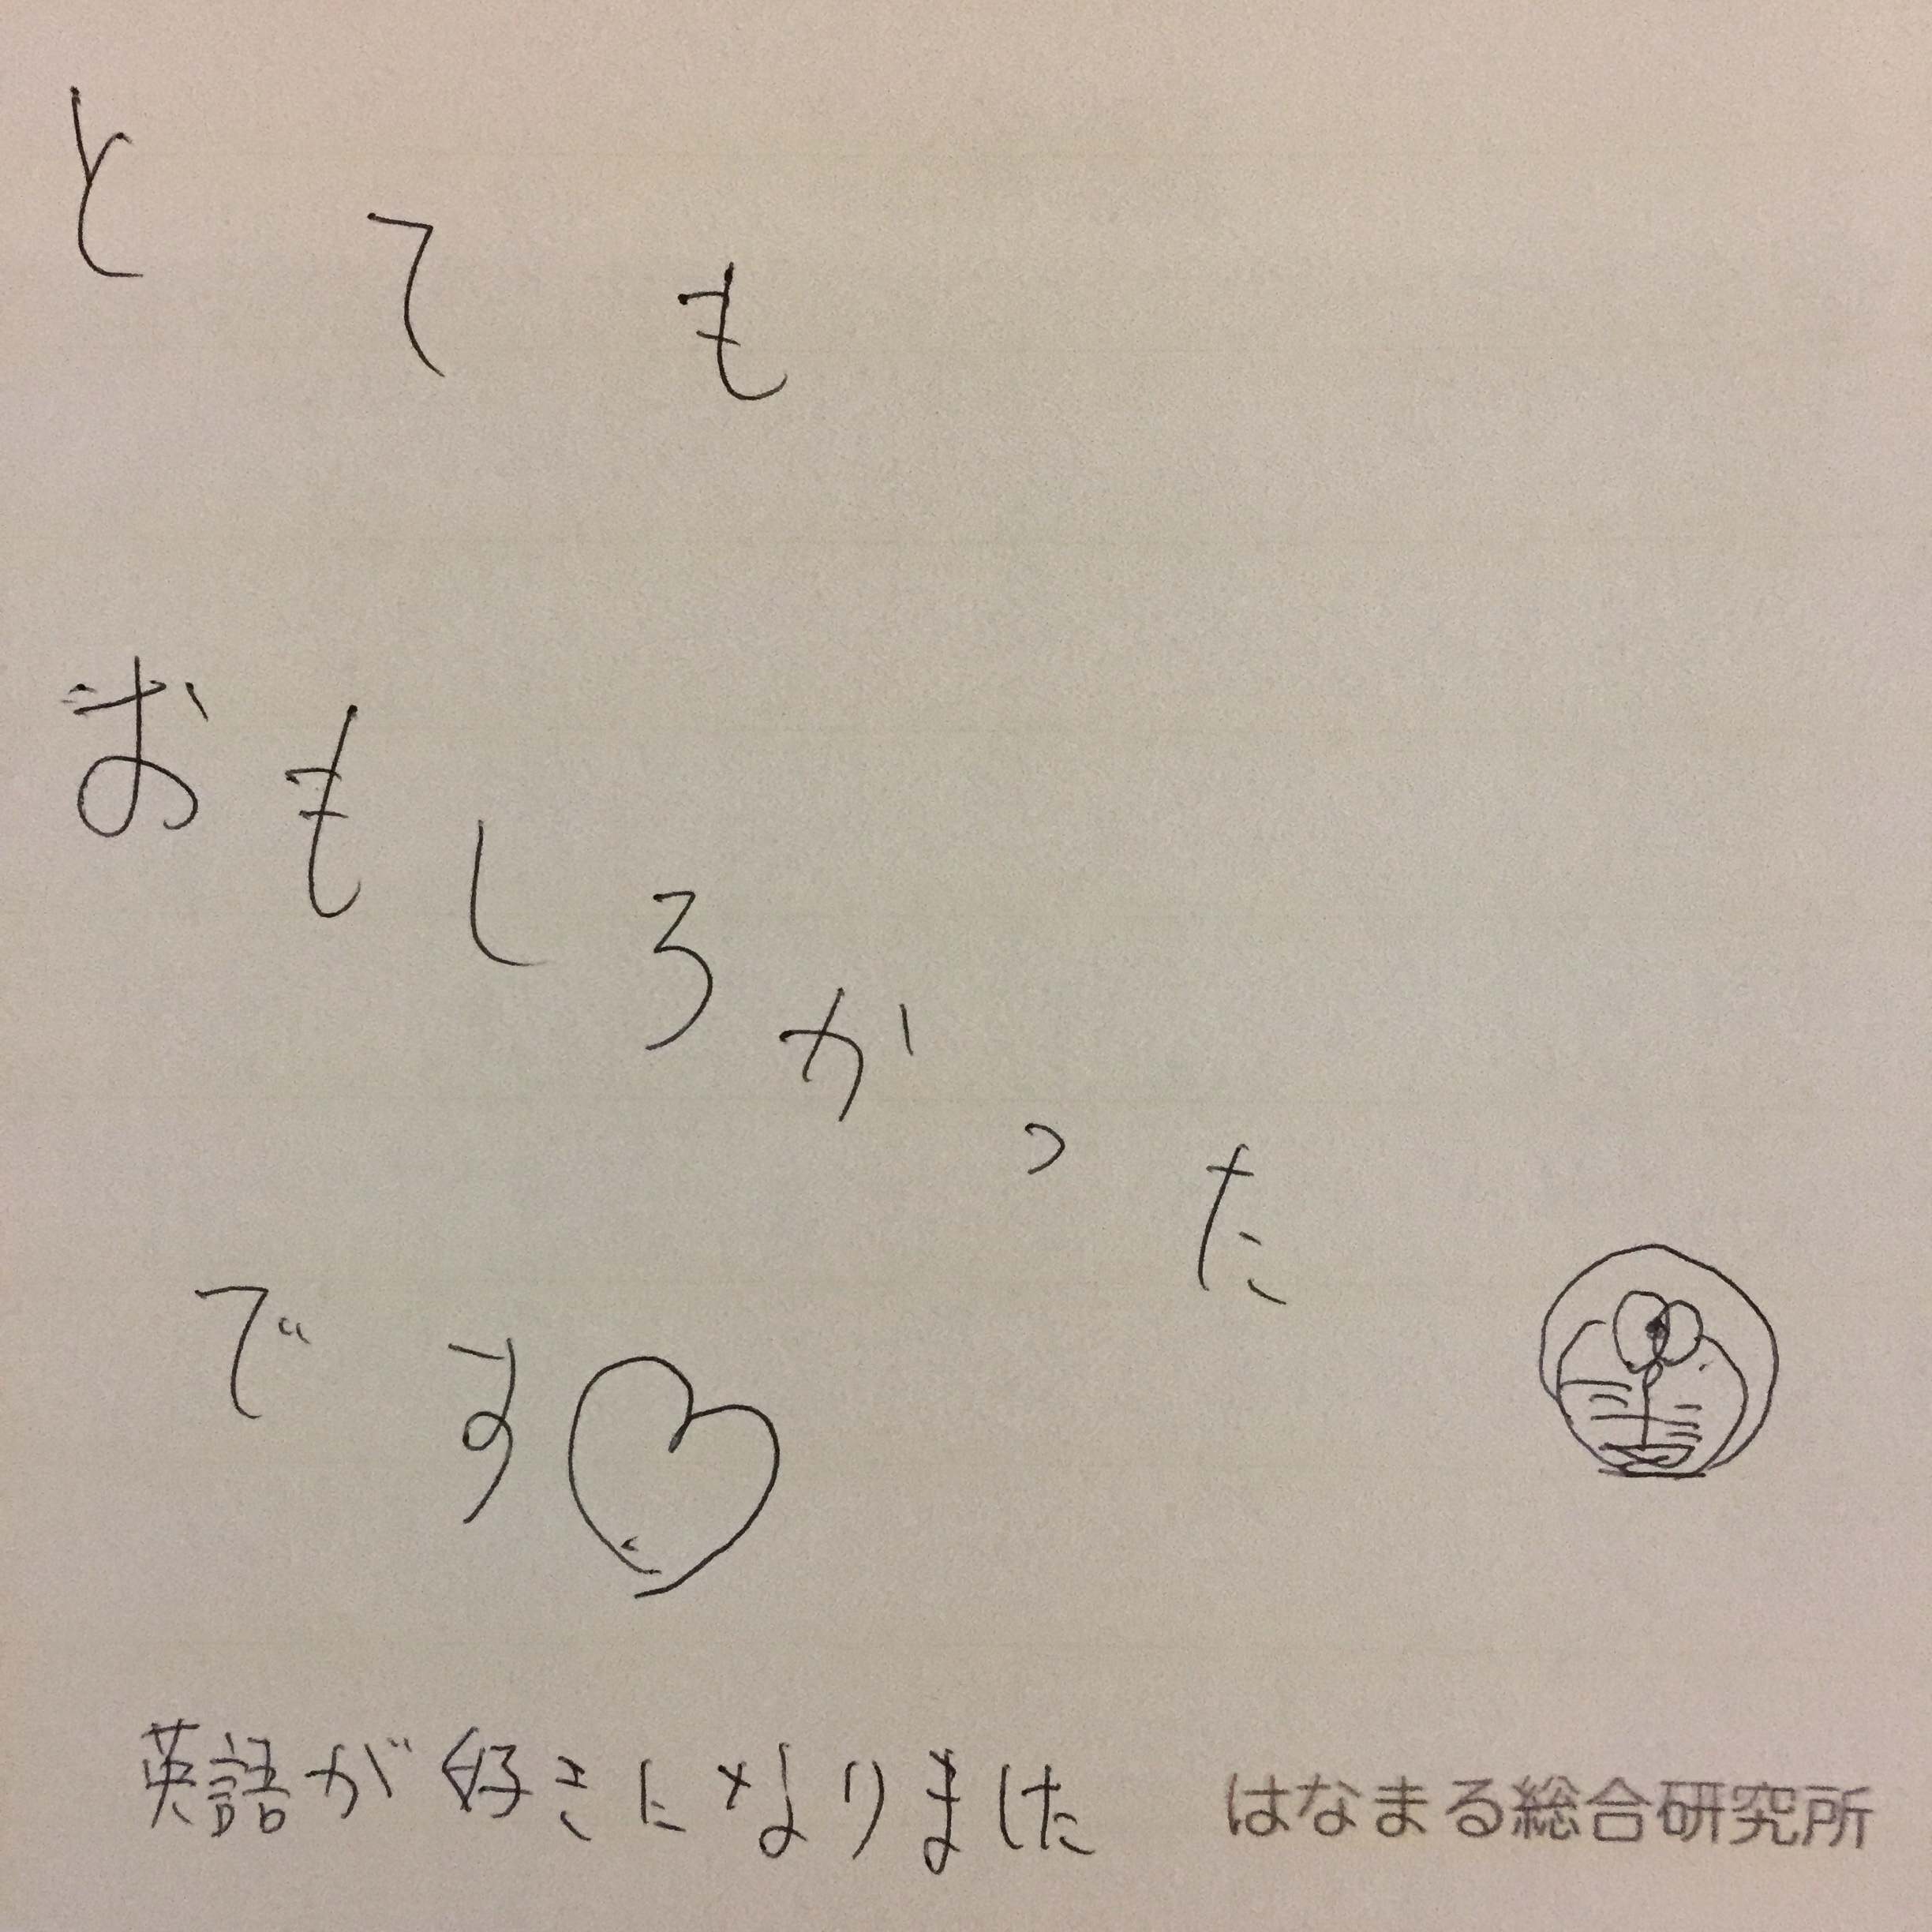 とても
おもしろかった
です♡
英語が好きになりました
はなまる総合研究所